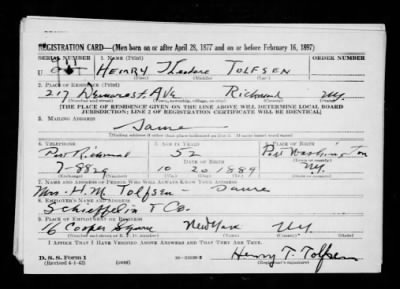 REGISTRATION CARD—(Men born on or after April 28, 1877 and on or before February 16, 1897)
SERIAL NUMBER 1. NAME (Print) ORDER NUMBER
U HENRY Theodore TOLFSEN
(First) (Middle) (Last)
2. PLACE OF RESIDENCE (Print)
217 Ave Richmond NY.
(Number and street) (Town, township, village, or city) (County) (State)
[THE PLACE OF RESIDENCE GIVEN ON THE LINE ABOVE WILL DETERMINE LOCAL BOARD
JURISDICTION; LINE 2 OF REGISTRATION CERTIFICATE WILL BE IDENTICAL]
3. MAILING ADDRESS
Same
(Mailing address if other than place indicated on line 2. If same insert word same)
4. TELEPHONE 5. AGE IN YEARS 6. PLACE OF BIRTH
Port Richmond 52 Port Washington
DATE OF BIRTH
7-8829 10 20 1889 NY
(Exchange) (Number) (Mo.) (Day) (Yr.) (State or country)
7. NAME AND ADDRESS OF PERSON WHO WILL ALWAYS KNOW YOUR ADDRESS
Mrs. H. M. Tolfsen Same
8. EMPLOYER'S NAME AND ADDRESS
Schieffelin & Co.
9. PLACE OF EMPLOYMENT OR BUSINESS
16 Cooper Square New York NY.
(Number and street or R. F. D. number) (Town) (County) (State)
I AFFIRM THAT I HAVE VERIFIED ABOVE ANSWERS AND THAT THEY ARE TRUE.
D. S. S. Form 1
(Revised 4-1-42) (over) Henry T. Tolfsen
(Registrant's signature)